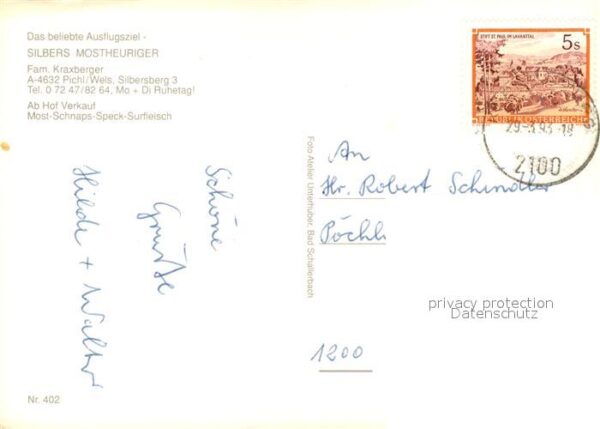 Das beliebte Ausflugsziel -
SILBERS MOSTHEURIGER
Fam. Kraxberger
A-4632 Pichl/Wels, Silbersberg 3
Tel. 0 72 47/82 64, Mo + Di Ruhetag!
Ab Hof Verkauf
Most-Schnaps-Speck-Surfleisch
Schöne
Grüße
Hilde + Walter
Nr. 402
Foto Atelier Unterhuber, Bad Schallerbach
STIFT ST. PAUL IM LAVANTTAL
5s
REPUBLIK ÖSTERREICH
2100
An
Hr. Robert Schindler
1200
privacy protection
Datenschutz